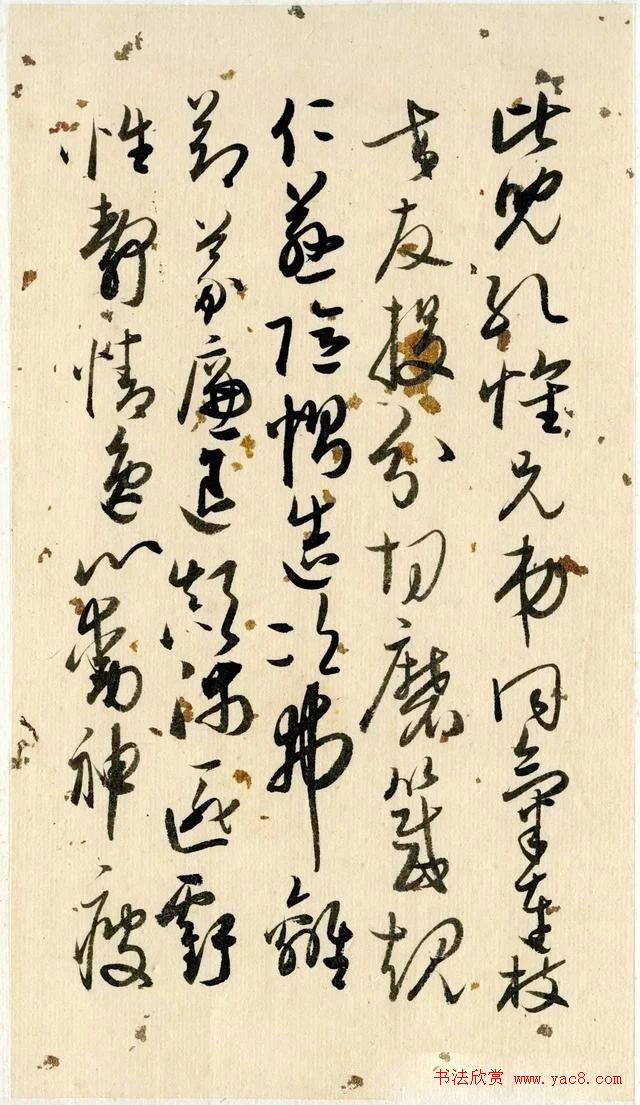 比兒孔懷兄弟同氣連枝
交友投分切磨箴規
仁慈隱惻造次弗離
節義廉退顛沛匪虧
性靜情逸心動神疲
书法欣赏 www.yac8.com